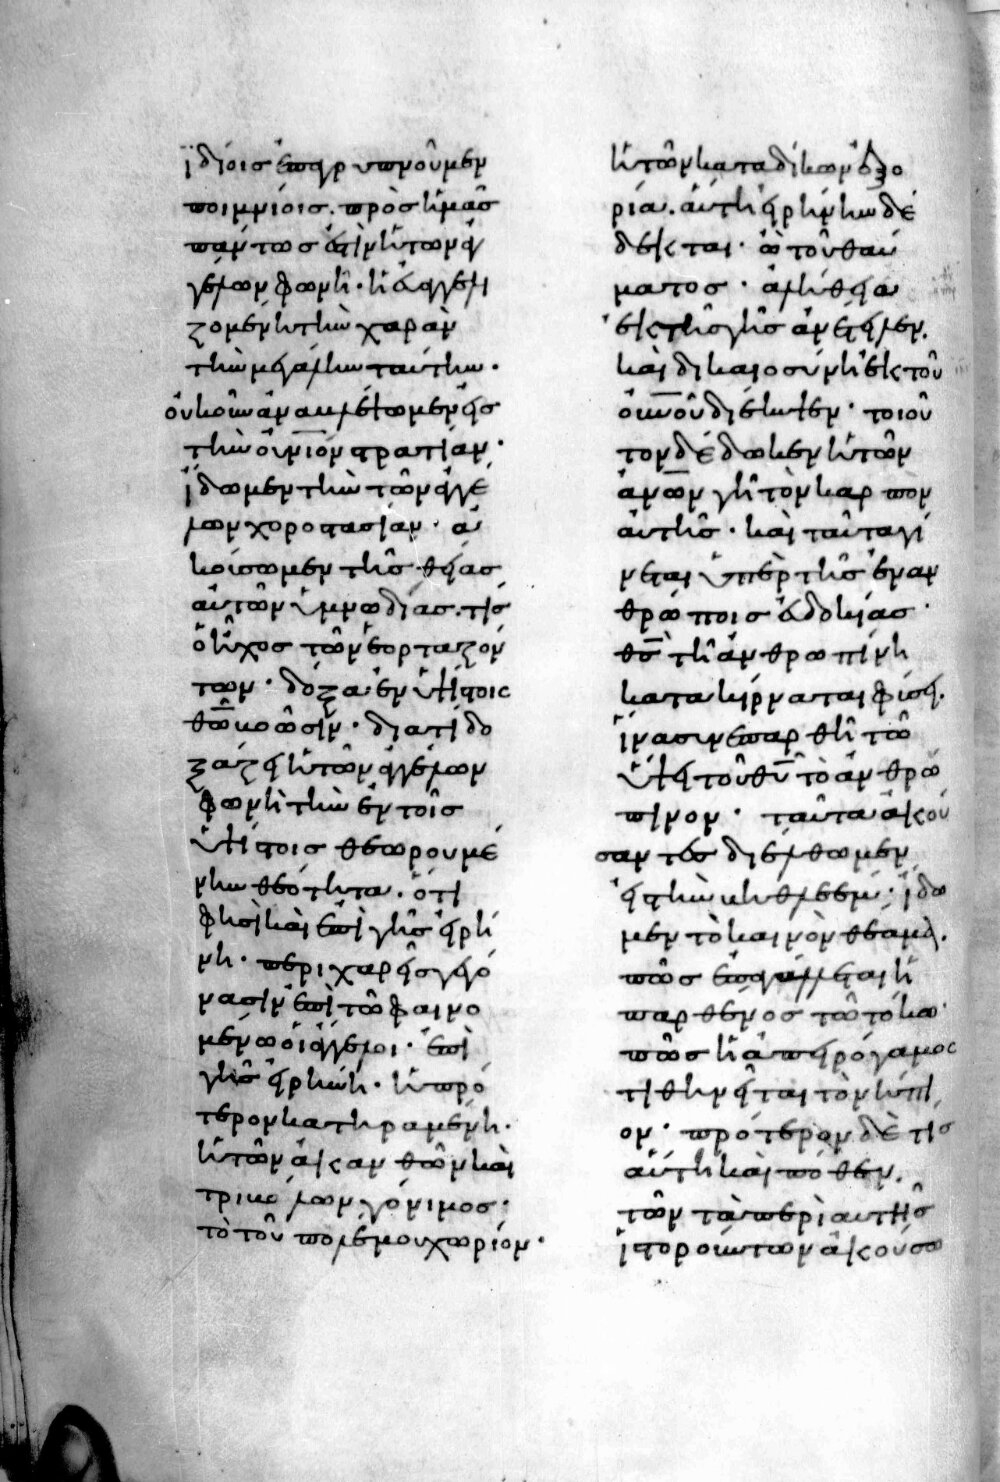 ϊδίοις ἐπαγρυπνοῦμεν
ποιμνίοις. πρὸς ἡμᾶς
πάντως ἐστὶν ἡ τῶν ἀγ
γέλων φωνὴ. ἡ εὐαγγελι
ζομένη τὴν χαρὰν
τὴν μεγάλην ταύτην.
οὐκοῦν ἀναβλέψωμεν εἰς
τὴν οὐνιον στρατίαν.
ἴδωμεν τὴν τῶν ἀγγέ
λων χοροστασίαν. ἀ
κούσωμεν τῆς θείας
αὐτῶν ὑμνωδίας. τίς
ὁ ἦχος τῶν ἑορταζόν
των. δόξα ἐν ὑψίστοις
θῶ βοῶσιν. διατί δο
ξάζει ἡ τῶν ἀγγέλων
φωνὴ τὴν ἐν τοῖς
ὑψίστοις θεωρουμέ
νην θεότητα. ὅτι
φησὶ καὶ ἐπὶ γῆς εἰρή
νη. περιχαρεῖς γεγό
νασιν ἐπὶ τῶ φαινο
μένω οἱ ἄγγελοι. ἐπὶ
γῆς εἰρήνη. ἡ πρό
τερον κατηραμένη.
ἡ τῶν ἀκανθῶν καὶ
τριβόλων γόνιμος.
τὸ τοῦ πολέμου χωρίον.
ἡ τῶν καταδίκων ἐξο
ρία. αὐτὴ εἰρήνην δέ
δεκται. ὢ τοῦ θαύ
ματος. ἀλήθεια
ἐκ τῆς γῆς ἀνέτειλεν.
καὶ δικαιοσύνη ἐκ τοῦ
οὐνοῦ διέκυψεν. τοιοῦ
τον δέδωκεν ἡ τῶν
ἀνων γῆ τὸν καρπὸν
αὐτῆς. καὶ ταῦτα γί
νεται ὑπὲρ τῆς ἐν ἀν
θρώποις εὐδοκίας.
θς τῆ ἀνθρωπίνη
κατακίρναται φύσει.
ἵνα συνεπαρθῆ τῶ
ὕψει τοῦ θυ τὸ ἀνθρώ
πινον. ταῦτα ἀκού
σαντες διέλθωμεν
εἰς τὴν βηθλεέμ. ἴδω
μεν τὸ καινὸν θέαμα.
πῶς ἐπαγάλλεται ἡ
παρθένος τῶ τόκω.
πῶς ἡ ἀπειρόγαμος
τιθηνεῖται τὸ νήπι
ον. πρότερον δὲ τίς
αὐτὴ καὶ πόθεν.
τῶν τὰ περὶ αὐτῆς
ἱστορούντων ἀκούσω